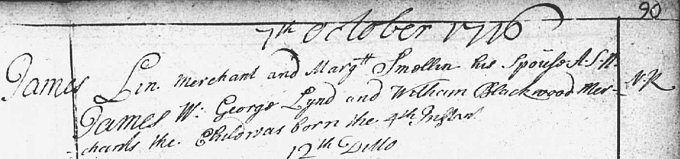 90
7th October 1716
James Lin. Merchant and Margtt Smollin his Spouse A.S.N. N.K
James W: George Lynd and William Blackwood Mer-
chants the Child was born the 4th Instant
12th Ditto